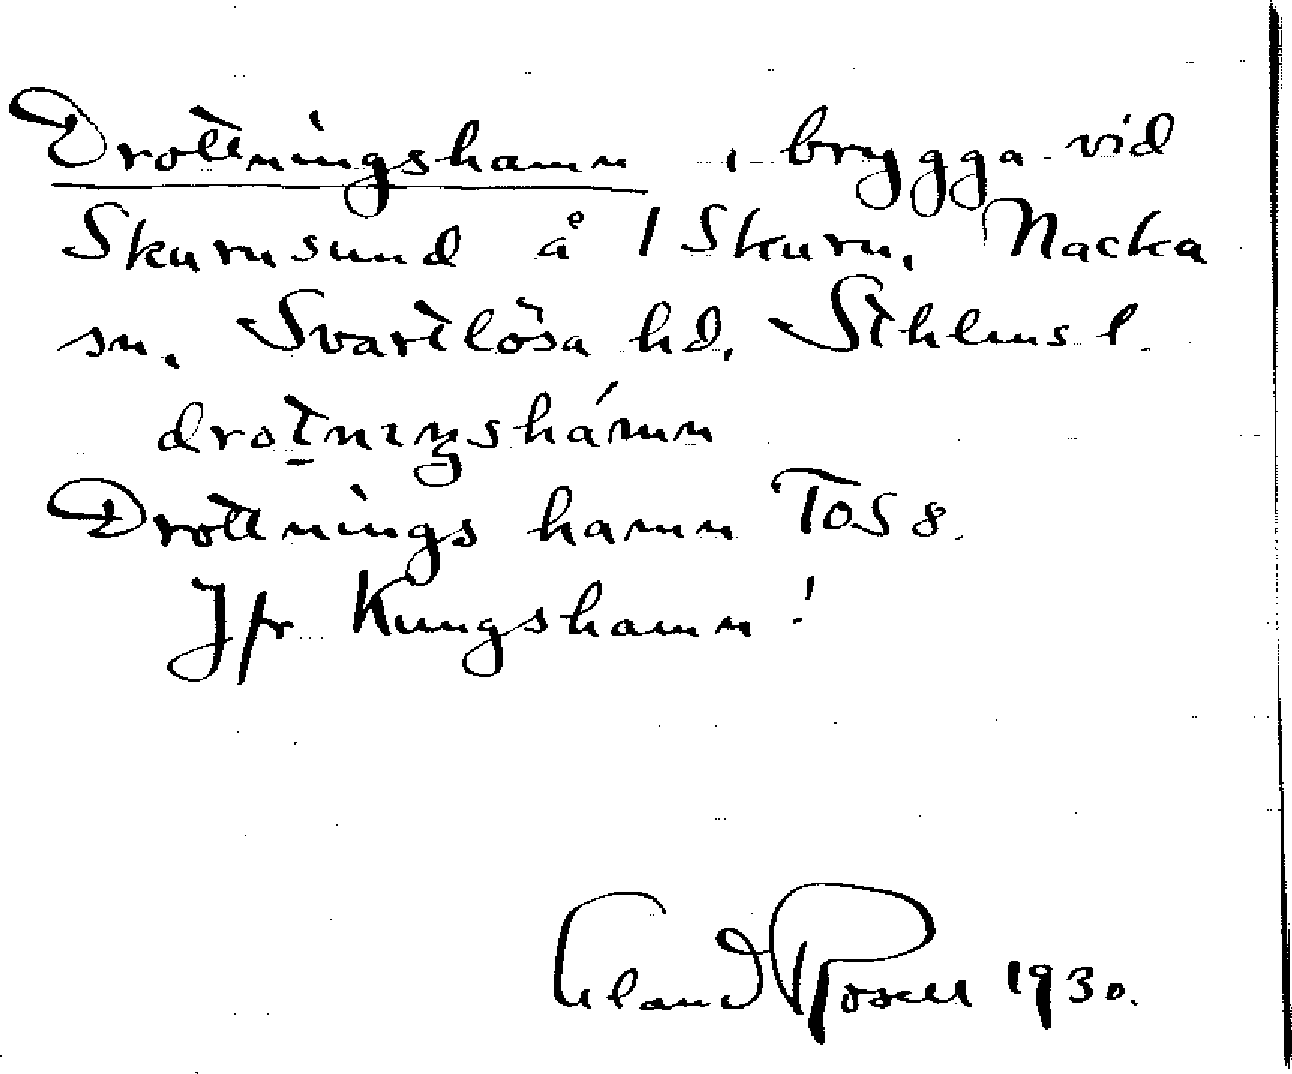 Drottningshamn, brygga vid
Skurusund å 1 Skuru, Nacka
sn. Svartlösa hd, Sthlms l.
drotnıŋshámn
Drottnings hamn TOS 8.
Jfr Kungshamn!
Eland Rosell 1930.